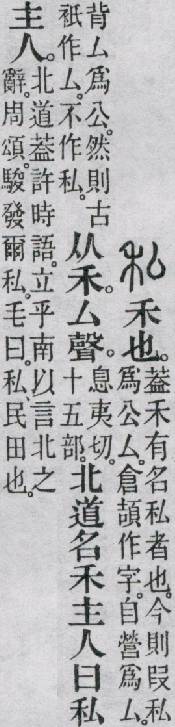 私 禾也。葢禾有名私者也。今則叚私爲公厶。倉頡作字。自營爲厶。
背厶爲公。然則古祇作厶。不作私。从禾。厶聲。息夷切。十五部。北道名禾主人曰私
主人。北道葢許時語。立乎南以言北之辭。周頌。駿發爾私。毛曰。私、民田也。